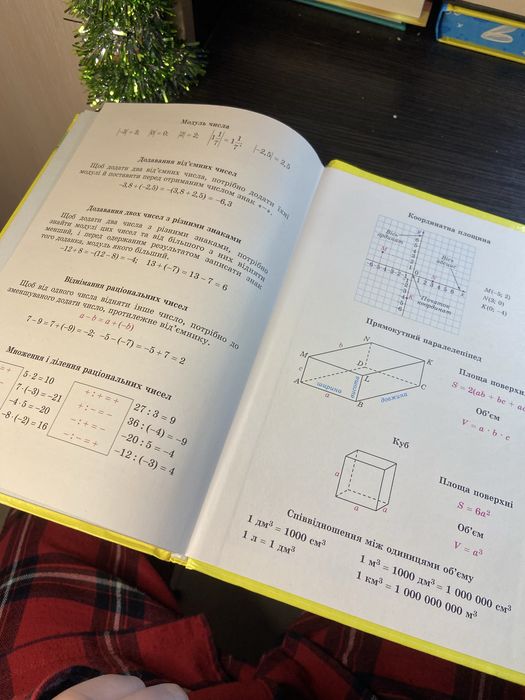 Модуль числа
|-3| = 3; |0| = 0; |2| = 2; |1 1/7| = 1 1/7; |-2,5| = 2,5
Додавання від'ємних чисел
Щоб додати два від'ємних числа, потрібно додати їхні
модулі й поставити перед отриманим числом знак «-».
-3,8 + (-2,5) = -(3,8 + 2,5) = -6,3
Додавання двох чисел з різними знаками
Щоб додати два числа з різними знаками, потрібно
знайти модулі цих чисел та від більшого з них відняти
менший, і перед одержаним результатом записати знак
того доданка, модуль якого більший.
-12 + 8 = -(12 - 8) = -4; 13 + (-7) = 13 - 7 = 6
Віднімання раціональних чисел
Щоб від одного числа відняти інше число, потрібно до
зменшуваного додати число, протилежне від'ємнику.
a - b = a + (-b)
7 - 9 = 7 + (-9) = -2; -5 - (-7) = -5 + 7 = 2
Множення і ділення раціональних чисел
5 · 2 = 10
7 · (-3) = -21
-4 · 5 = -20
-8 · (-2) = 16
+ : + = +
+ : - = -
- : + = -
- : - = +
27 : 3 = 9
36 : (-4) = -9
-20 : 5 = -4
-12 : (-3) = 4
Координатна площина
Вісь
ординат
Вісь
абсцис
Початок
координат
M(-5; 2)
N(3; 0)
K(0; -4)
Прямокутний паралелепіпед
N
b
M
K
c
D
L
A
C
B
a
ширина
висота
довжина
Площа поверхні
S = 2(ab + bc + ac
Об'єм
V = a · b · c
Куб
a
a
a
Площа поверхні
S = 6a²
Об'єм
V = a³
Співвідношення між одиницями об'єму
1 дм³ = 1000 см³
1 л = 1 дм³
1 м³ = 1000 дм³ = 1 000 000 см³
1 км³ = 1 000 000 000 м³